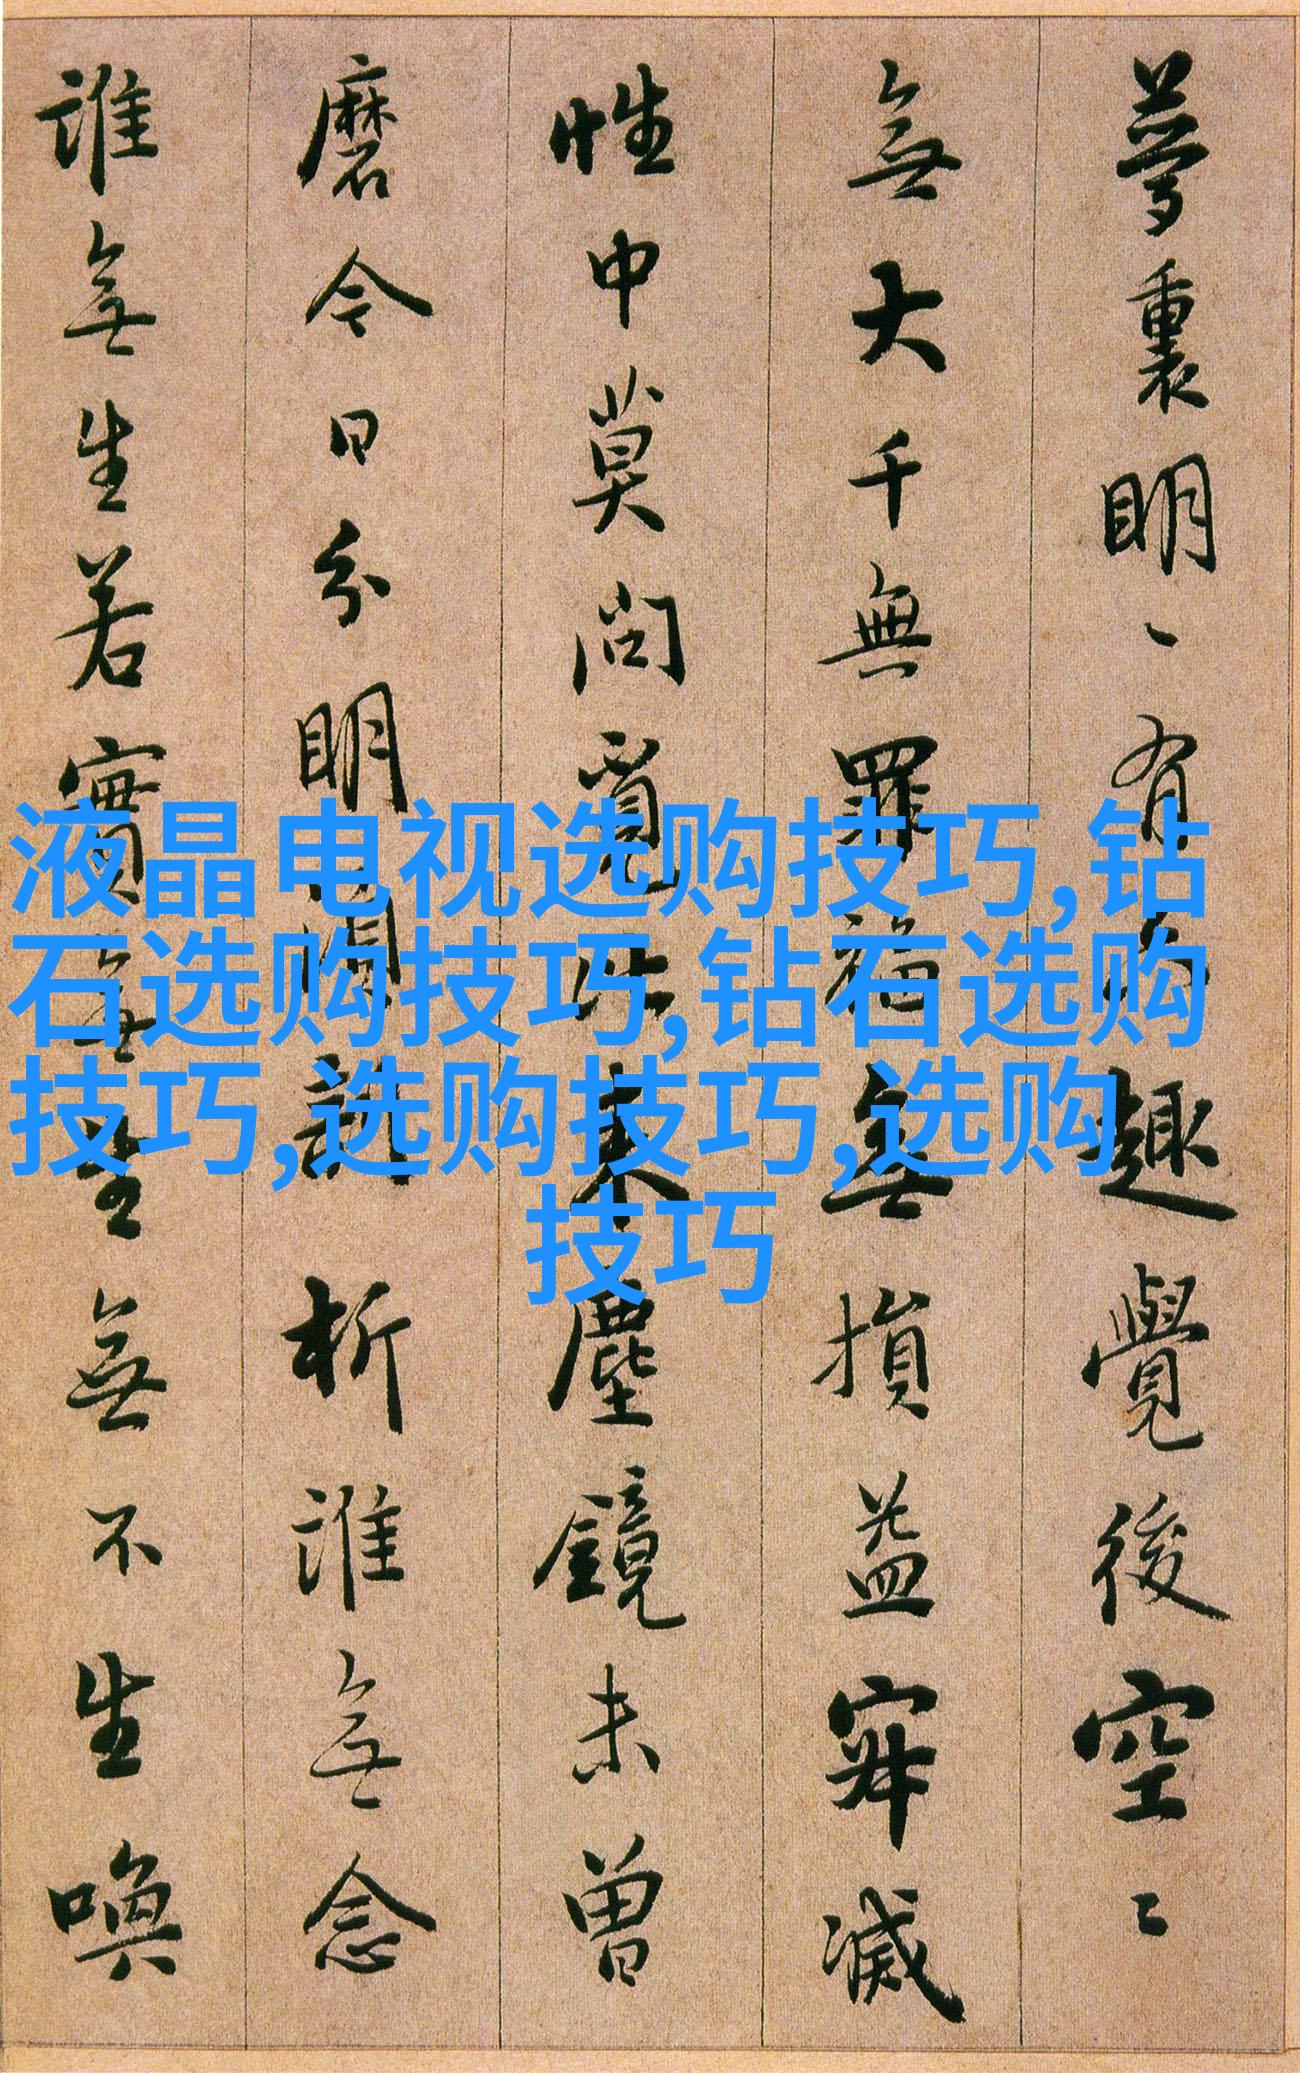 液晶电视选购技巧,钻
石选购技巧,钻石选购
技巧,选购技巧,选购
技巧
夢裏明〻有六趣覺後空〻
無大千無罪福無損益寂滅
性中莫問覓比来塵鏡未曾
磨今日分明須剖析誰無念
誰無生若實無生無不生喚